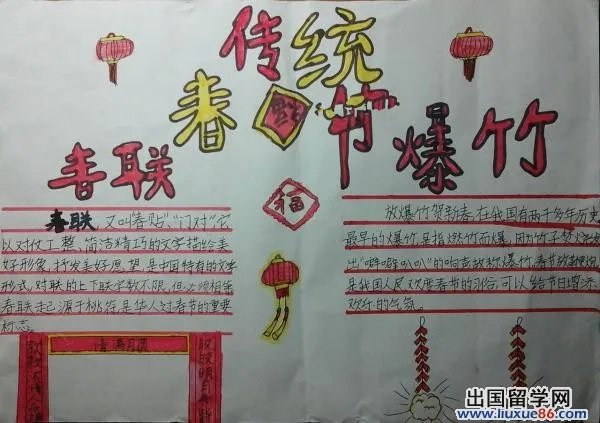 传统
春节
春联
爆竹
福
春联，又叫"春贴"、"门对"它
以对仗工整、简洁精巧的文字描绘美
好形象，抒发美好愿望，是中国特有的文学
形式，对联的上下联字数不限，但必须相等
春联起源于桃符，是华人过春节的重要
标志。
放爆竹贺新春，在我国有两千多年历史
最早的爆竹，是指燃竹而爆，因为竹子焚烧发
出"噼噼叭叭"的响声故称爆竹，春节放鞭炮
是我国人民欢度春节的习俗，可以给节日增添
欢乐的气氛。
出国留学网
www.liuxue86.com